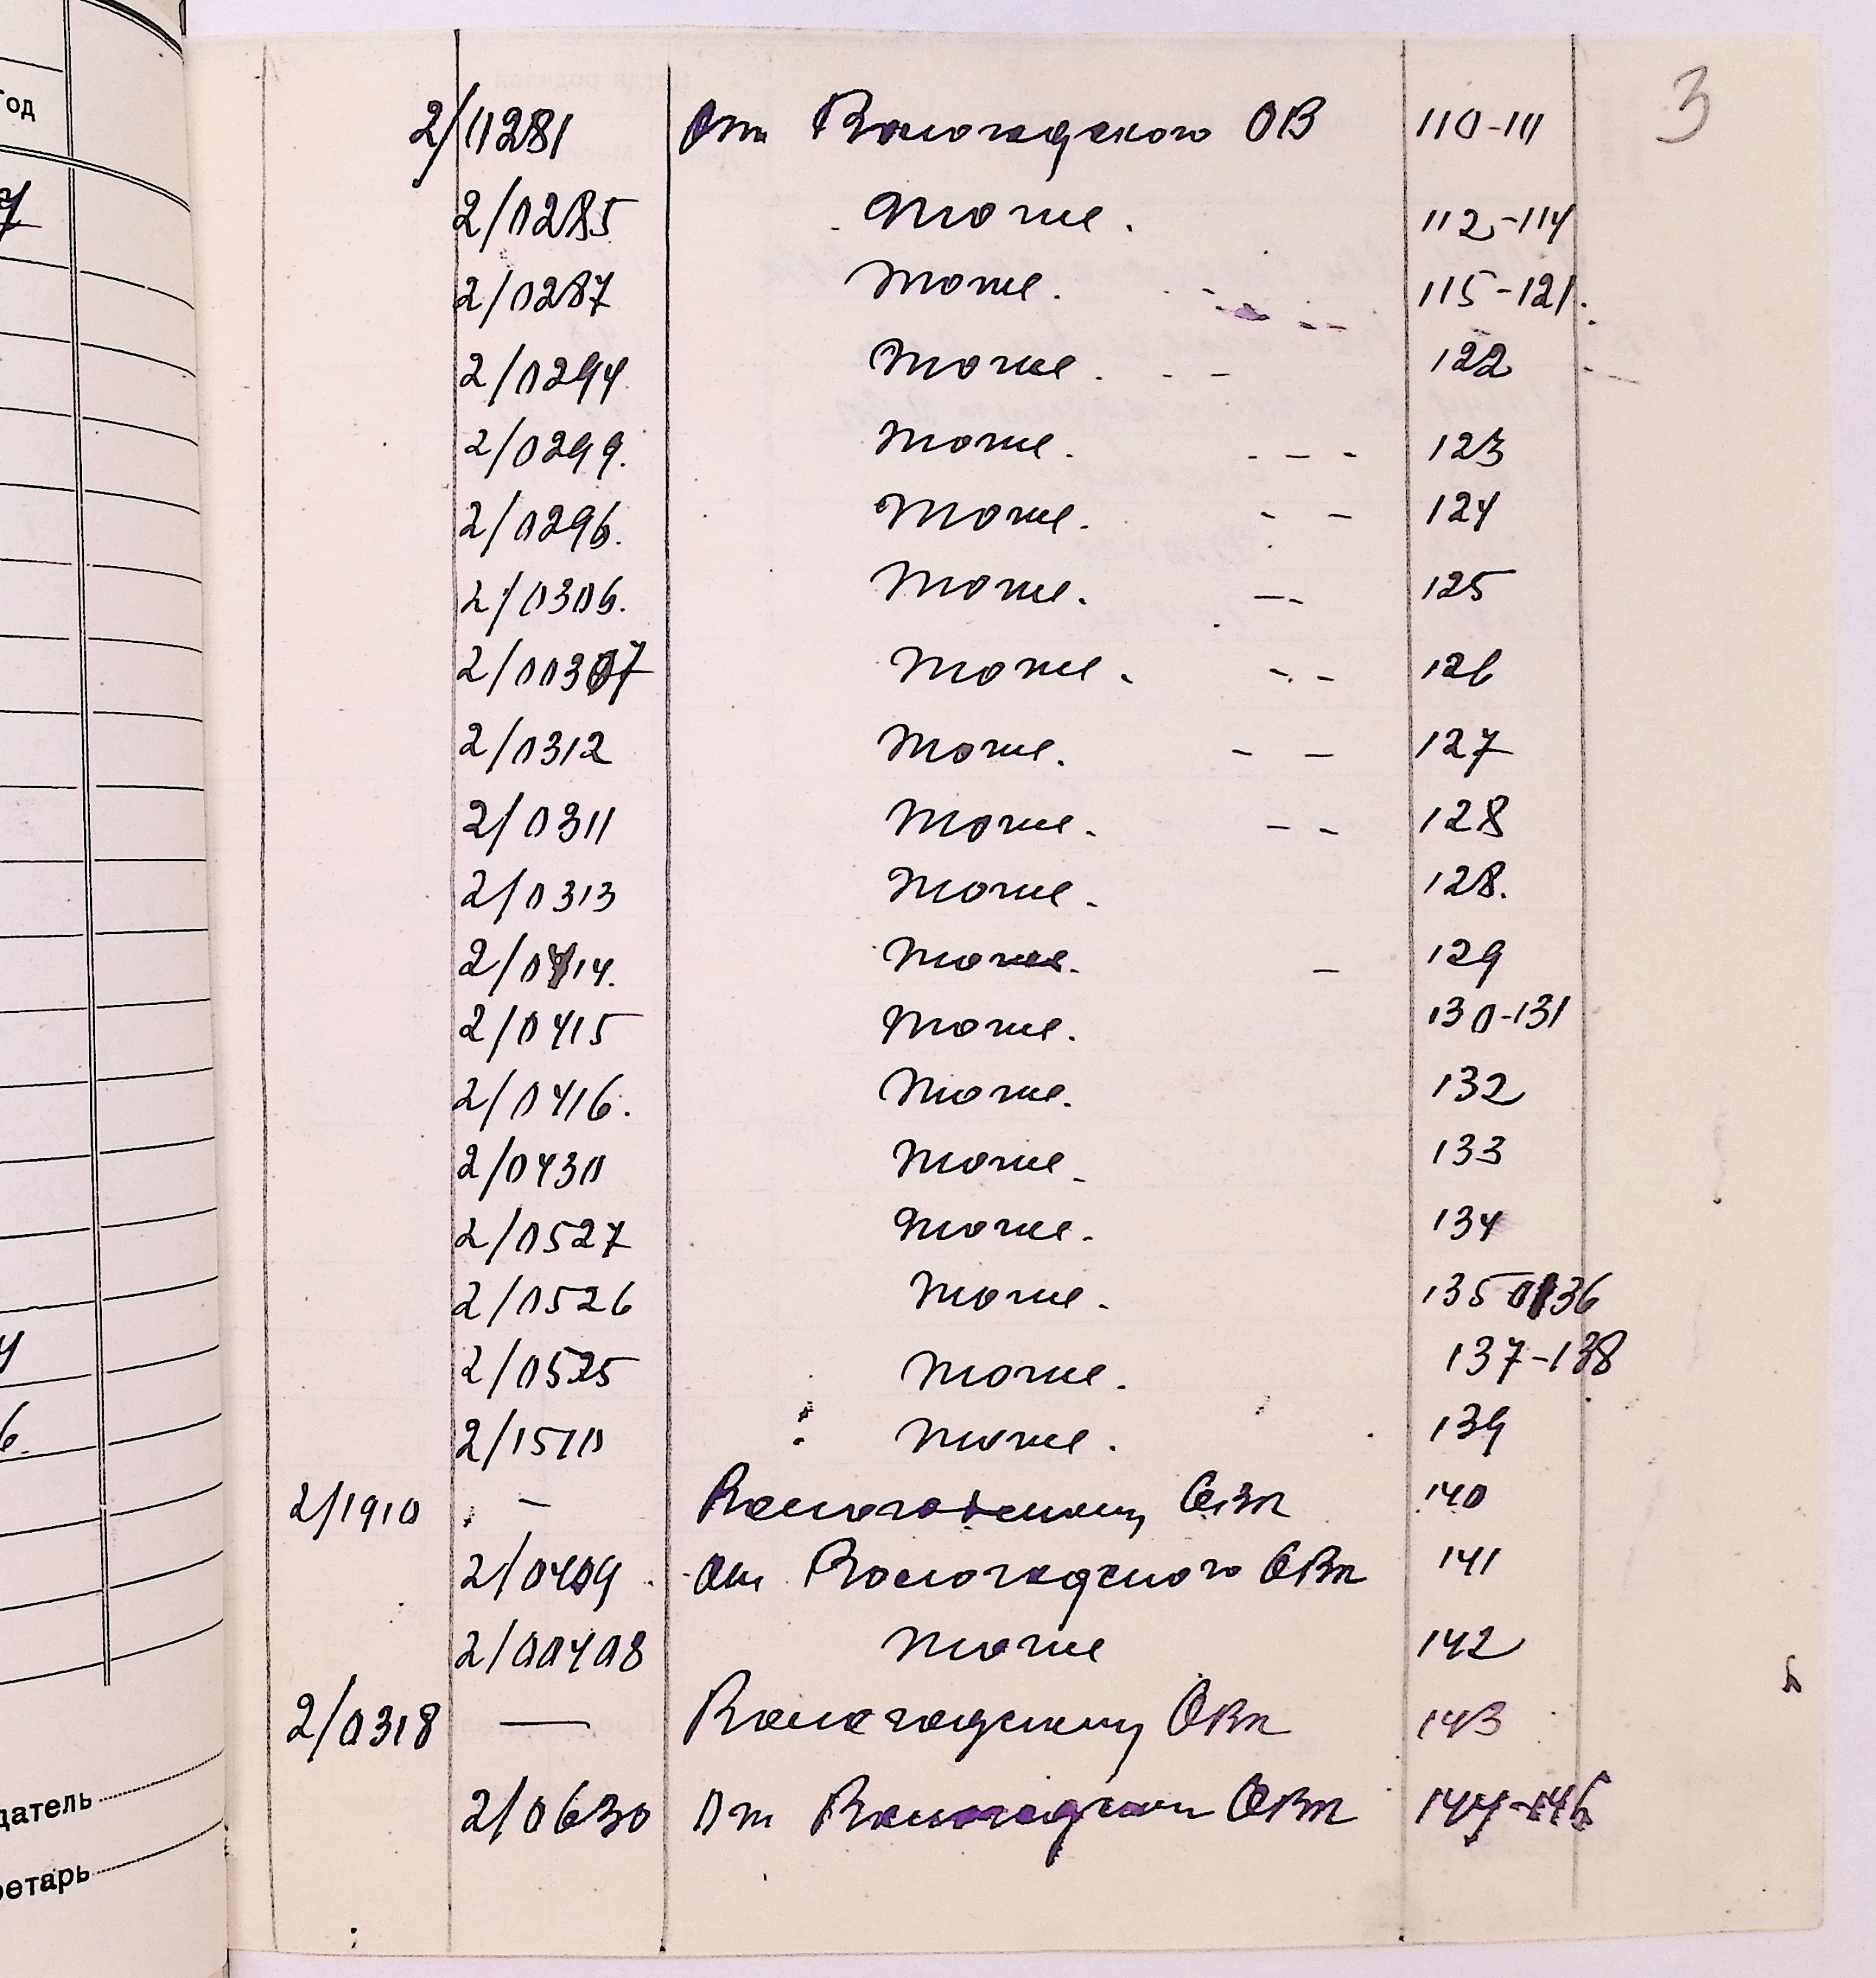 од
3
2/0281 От Вологодского ОВ 110-111
2/0285 Тоже. 112-114
2/0287 Тоже. 115-121.
2/0294 Тоже. 122
2/0299. Тоже. 123
2/0296. Тоже. 124
2/0306. Тоже. 125
2/00307 Тоже. 126
2/0312 Тоже. 127
2/0311 Тоже. 128
2/0313 Тоже. 128.
2/0414. Тоже. 129
2/0415 Тоже. 130-131
2/0416. Тоже. 132
2/0430 Тоже. 133
2/0527 Тоже. 134
2/0526 Тоже. 135 136
2/0525 Тоже. 137-138
2/1510 Тоже. 139
2/1910 — Вологодскому 140
2/0409 От Вологодского ОВп 141
2/00408 Тоже 142
2/0318 — Вологодскому ОВп 143
2/0630 От ОВп 144-146
датель
ретарь